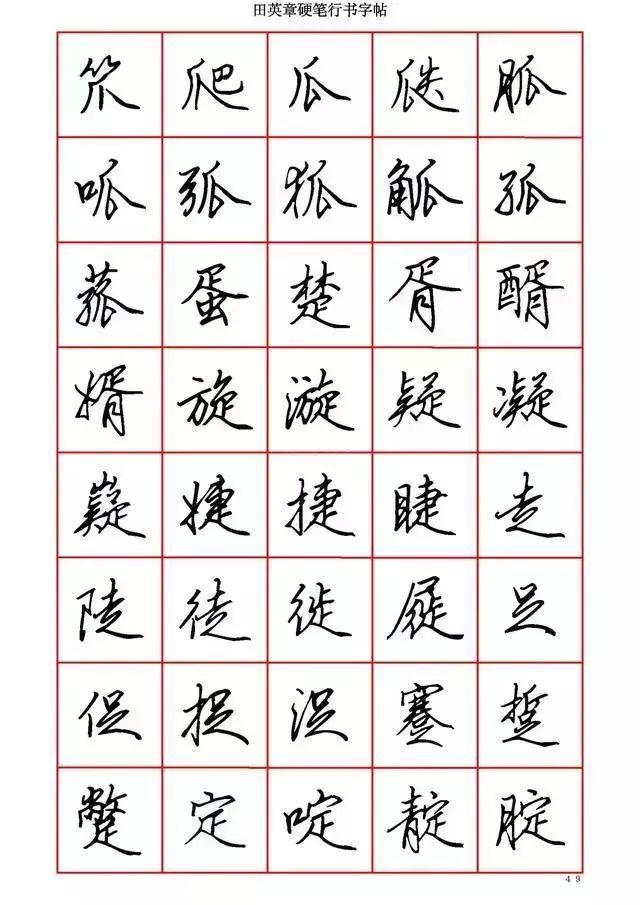 田英章硬笔行书字帖
笊 爬 瓜 瓞 胍
呱 弧 狐 觚 孤
菰 蛋 楚 胥 醑
婿 旋 漩 疑 凝
嶷 婕 捷 睫 走
陡 徒 徙 屣 足
促 捉 浞 蹇 踅
蹩 定 啶 靛 腚
49